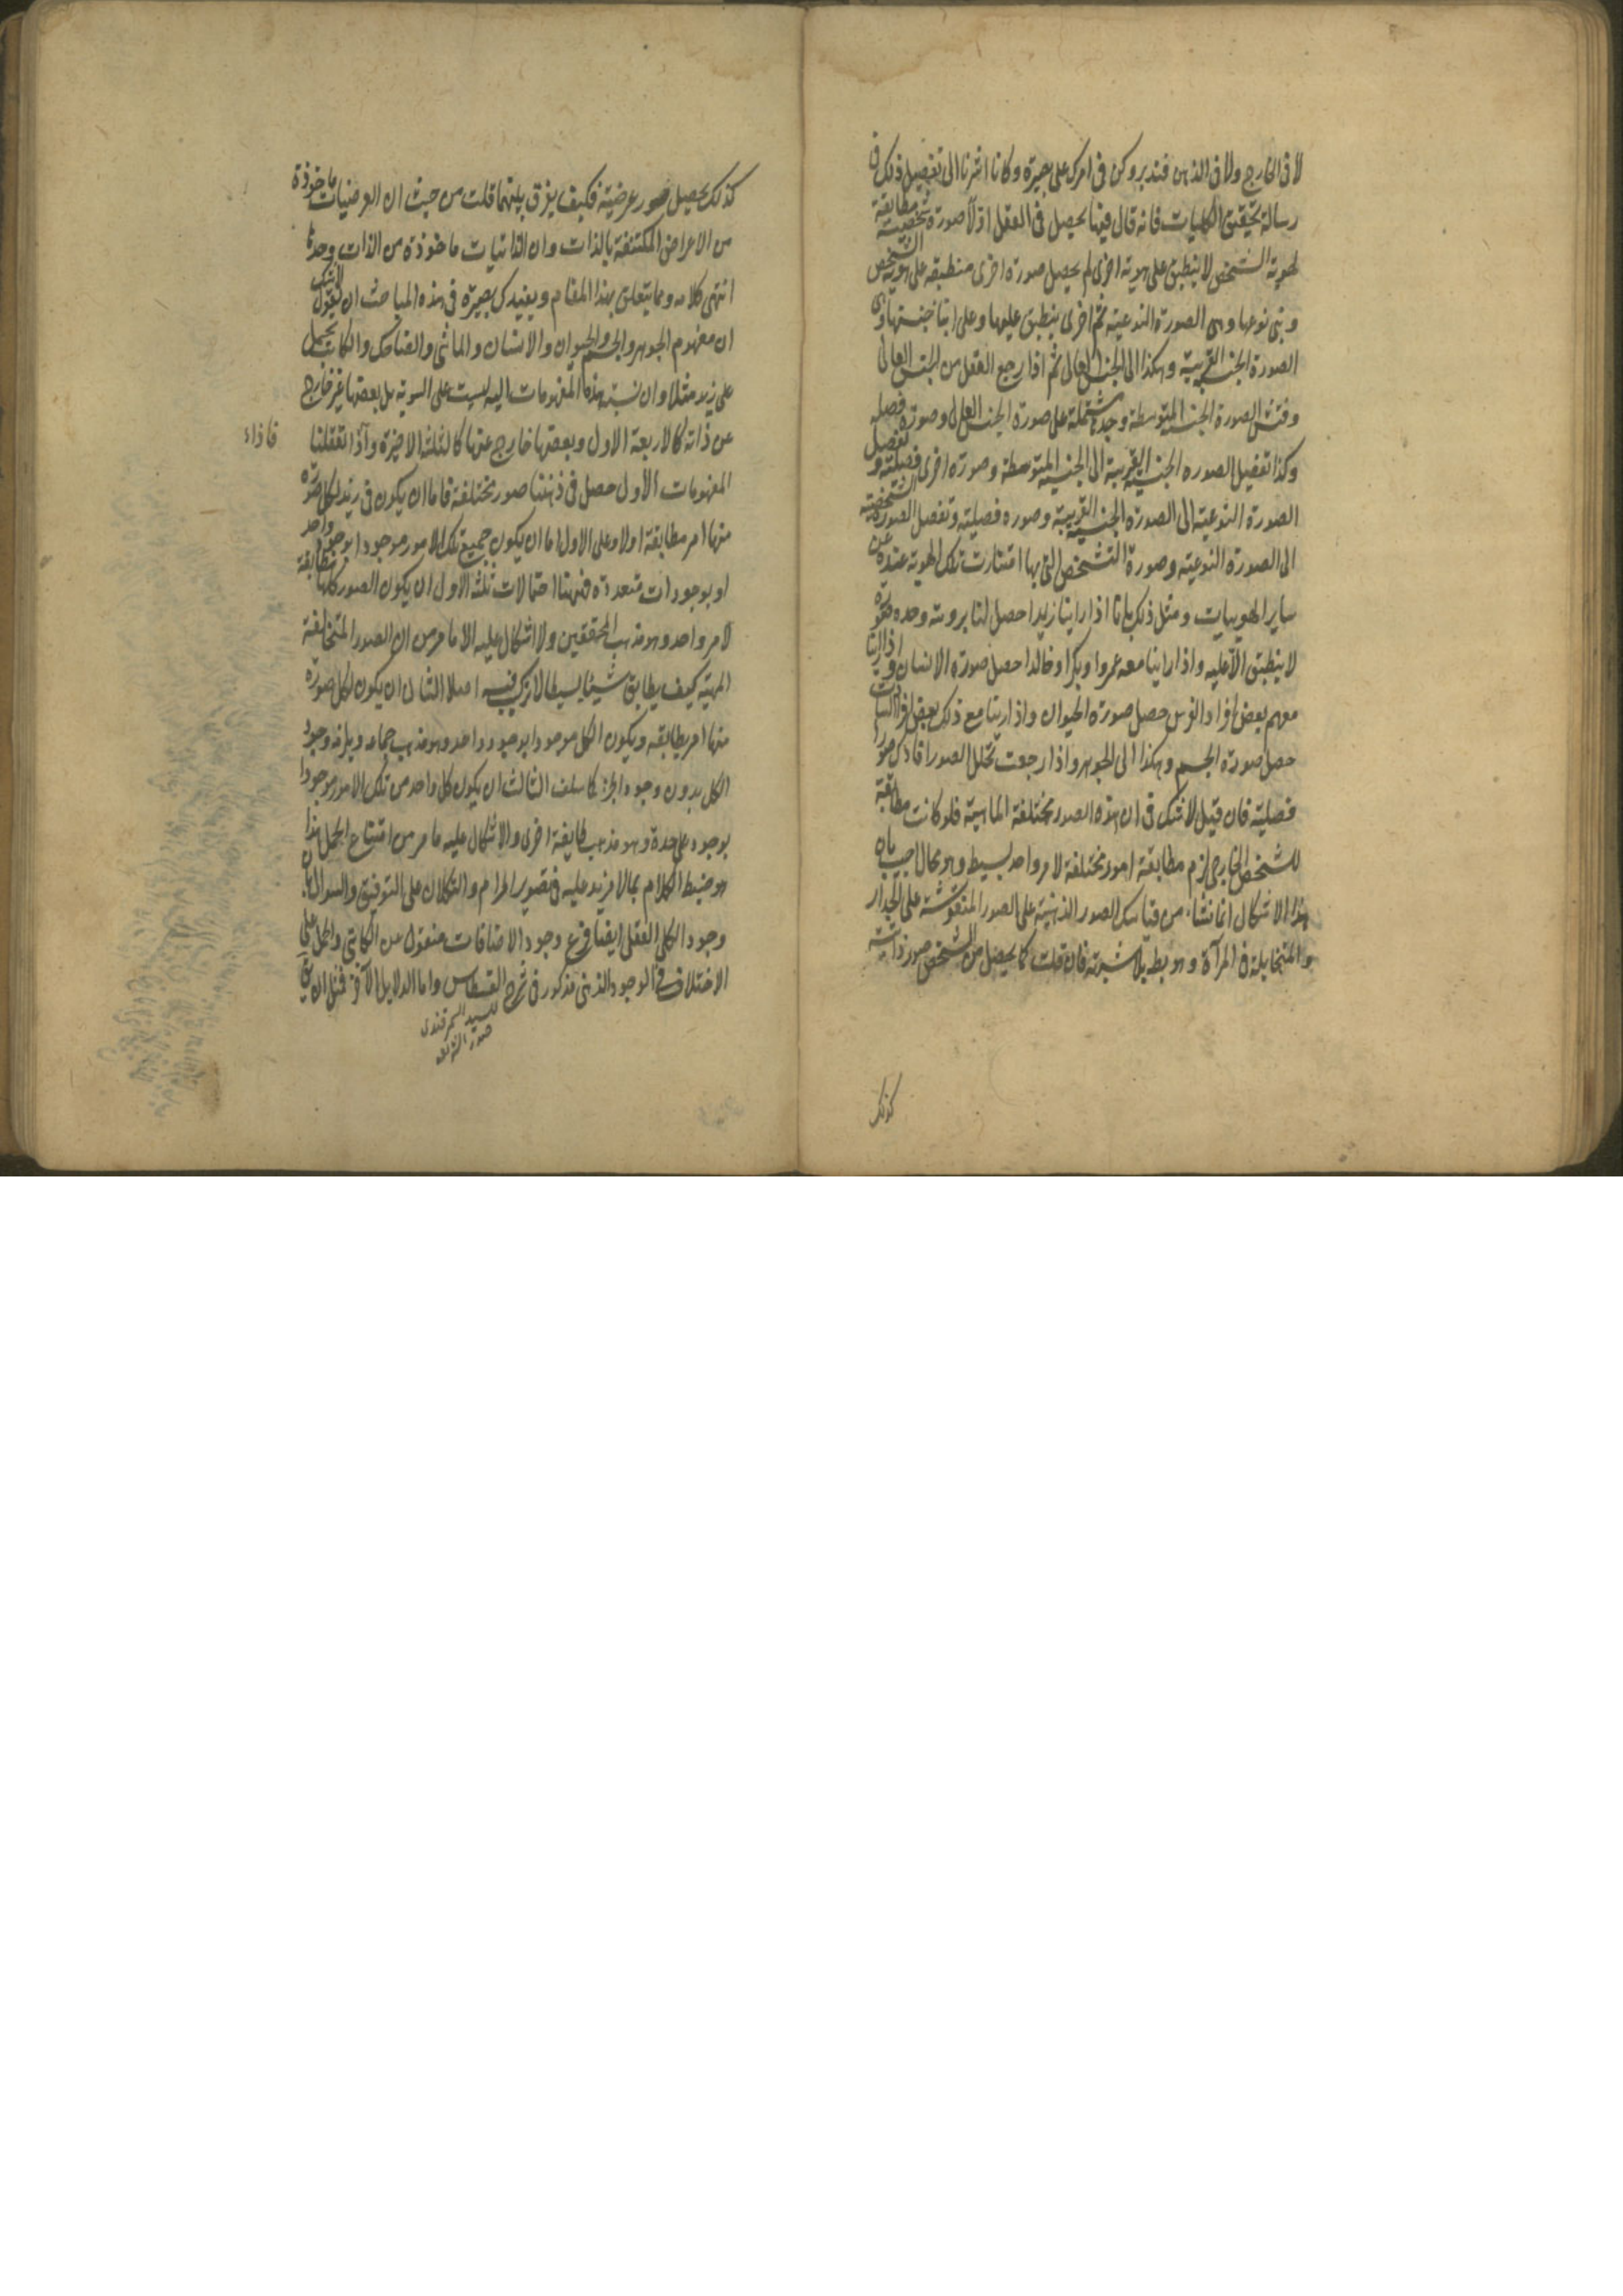 لا فى الخارج ولا فى الذهن فتدبر وكن فى امرك على بصيرة وكانا اشرنا الى تفصيل ذلك فى
رسالة تحقيق الكليات فانه قال فيها يحصل فى العقل اولا صورة شخصية مطابقة
لهوية الشخص لا ينطبق على هوية اخرى ثم يحصل صورة اخرى منطبقة على هوية الشخص
وبنى نوعها وهى الصورة النوعية ثم اخرى ينطبق عليها وعلى ابنا جنسها وهى
الصورة الجنسية القريبة وهكذا الى الجنس العالى ثم اذا رجع العقل من الجنس العالى
وفتش الصورة الجنسية المتوسطة وجدها مشتملة على صورة الجنس العالى وصورة فصلية
وكذا تفصيل الصورة الجنسية القريبة الى الجنسية المتوسطة وصورة اخرى فصلية وتفصيل
الصورة النوعية الى الصورة الجنسية القريبة وصورة فصلية وتفصل الصورة الشخصية
الى الصورة النوعية وصورة التشخص التى بها امتازت تلك الهوية عنده عن
ساير الهويات ومثل ذلك بانا اذا راينا زيدا حصل لنا برويته وحده صورة
لا ينطبق الا عليه واذا راينا معه عمروا وبكرا وخالدا حصل صورة الانسان واذا راينا
معهم بعض افراد الفرس حصل صورة الحيوان واذا راينا مع ذلك بعض افراد النبات
حصل صورة الجسم وهكذا الى الجوهر واذا رجعت تحلل الصور افادك صورا
فصلية فان قيل لا شك فى ان هذه الصور مختلفة الماهية فلو كانت مطابقة
للشخص الخارجى لزم مطابقة امور مختلفة لامر واحد بسيط وهو محال اجيب بان
هذا الاشكال انما نشاء من قياسك الصور الذهنية على الصور المنقوشة على الجدار
والمتخايلة فى المرآة وهو بطـ بلا شبهة فان قلت كما يحصل من الشخص صور ذاتية
كذلك
كذلك يحصل صور عرضية فكيف يفرق بينهما قلت من حيث ان العرضيات ماخوذة
من الاعراض المكتنفة بالذات وان الذاتيات ماخوذة من الذات وحدها
انتهى كلامه ومما يتعلق بهذا المقام ويفيدك بصيرة فى هذه المباحث ان يقول لا شك
ان مفهوم الجوهر والجسم والحيوان والانسان والماشى والضاحك والكاتب يحمل
على زيد مثلا وان نسبة هذه المفهومات اليه ليست على السوية بل بعضها غير خارج
عن ذاته كالاربعة الاول وبعضها خارج عنها كالثلثة الاخيرة واذا تعقلنا
فاذا
المفهومات الاول حصل فى ذهننا صور مختلفة فاما ان يكون فى زيد لكل صورة
منها امر مطابقة اولا وعلى الاول اما ان يكون جميع تلك الامور موجودا بوجود واحد
او بوجودات متعددة فههنا احتمالات ثلثة الاول ان يكون الصور كلها مطابقة
لامر واحد وهو مذهب المحققين ولا اشكال عليه الا ما مر من ان الصور المتخالفة
المهية كيف يطابق شيئا بسيطا لا تركب فيه اصلا الثانى ان يكون لكل صورة
منها امر يطابقه ويكون الكل موجودا بوجود واحد وهو مذهب جماعة ويلزمه وجود
الكل بدون وجود الجزء كما سلف الثالث ان يكون كل واحد من تلك الامور موجودا
بوجود على حدة وهو مذهب طايفة اخرى والاشكال عليه ما مر من امتناع الحمل هذا
هو ضبط الكلام بما لا مزيد عليه فى تصوير المرام والتكلان على التوفيق والسؤال بان
وجود الكلى العقلى ايضا فرع وجود الاضافات منقول عن الكاتبى والحمل على
الاختلاف فى الوجود الذهنى مذكور فى شرح القسطاس واما الدلايل الآخر فمثل ان يق
للسيد السمرقندى